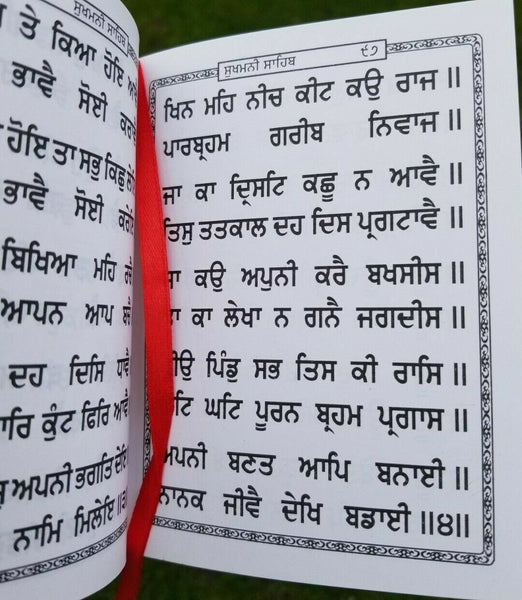 ਸੁਖਮਨੀ ਸਾਹਿਬ
ਤੇ ਕਿਆ ਹੋਇ
ਭਾਵੈ ਸੋਈ
ਹੋਇ ਤਾ ਸਭੁ ਕਿਛੁ
ਭਾਵੈ ਸੋਈ
ਬਿਖਿਆ ਮਹਿ
ਆਪਨ ਆਪ
ਦਹ ਦਿਸਿ ਧਾਵੈ
ਕੁੰਟ ਫਿਰਿ ਆਵੈ
ਅਪਨੀ ਭਗਤਿ ਦੇਇ
ਨਾਮਿ ਮਿਲੇਇ ॥੩॥
ਸੁਖਮਨੀ ਸਾਹਿਬ ੯੭
ਖਿਨ ਮਹਿ ਨੀਚ ਕੀਟ ਕਉ ਰਾਜ ॥
ਪਾਰਬ੍ਰਹਮ ਗਰੀਬ ਨਿਵਾਜ ॥
ਜਾ ਕਾ ਦ੍ਰਿਸਟਿ ਕਛੂ ਨ ਆਵੈ ॥
ਤਿਸੁ ਤਤਕਾਲ ਦਹ ਦਿਸ ਪ੍ਰਗਟਾਵੈ ॥
ਕਉ ਅਪੁਨੀ ਕਰੈ ਬਖਸੀਸ ॥
ਕਾ ਲੇਖਾ ਨ ਗਨੈ ਜਗਦੀਸ ॥
ਪਿੰਡੁ ਸਭ ਤਿਸ ਕੀ ਰਾਸਿ ॥
ਘਟਿ ਪੂਰਨ ਬ੍ਰਹਮ ਪ੍ਰਗਾਸ ॥
ਅਪਨੀ ਬਣਤ ਆਪਿ ਬਨਾਈ ॥
ਨਾਨਕ ਜੀਵੈ ਦੇਖਿ ਬਡਾਈ ॥੪॥